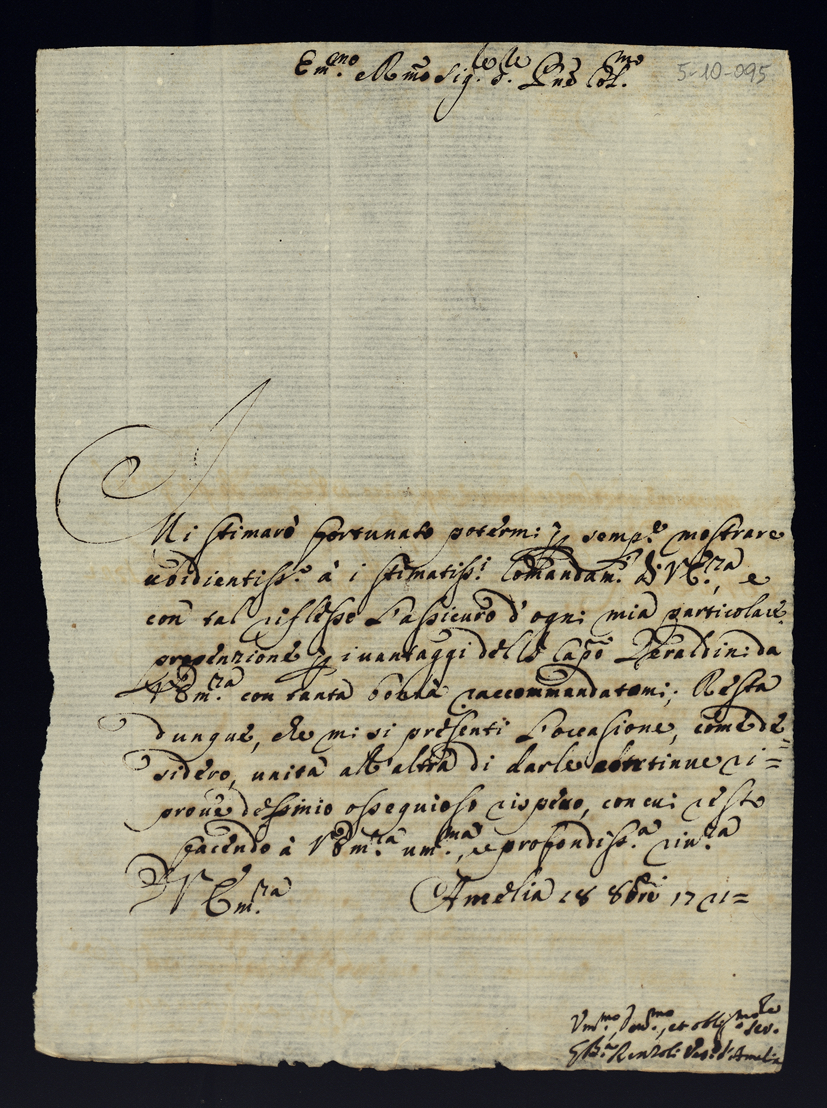 Em.mo e Rmo Sig.re Sig.re Pne Col.mo
5-10-095
Mi stimarò fortunato potermi p semp.e mostrare
ubidientiss.o à i stimatiss.i Comandam.ti di V. Em.za e
con tal riflesso l'assicuro d'ogni mia particolare
propenzione p i vantaggi dello Capo Geraldini da
V. Em.za con tanta bontà raccommandatomi; Resta
dunque, che mi si presenti l'occasione, come de=
sidero, unita all'altra di darle continue ri=
prove del mio ossequioso rispetto, con cui resto
facendo à V. Em.za um.ma, e profondiss.a riv.za
D V. Em.za
Amelia 18 8bre 1721=
Um.mo, Dev.mo, et obblig.mo Ser.re
G Ba Renzoli Vesc.o d'Amelia